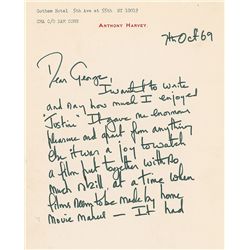 Gotham Hotel 5th Ave at 55th NY 10019
CMA C/O SAM COHN
ANTHONY HARVEY.
7th Oct 69
Dear George,
I want to write
and say how much I enjoyed
"Justine" It gave me enormous
pleasure and apart from anything
else it was a joy to watch
a film put together with so
much skill at a time when
films seem to be made by home
movie makers — It had